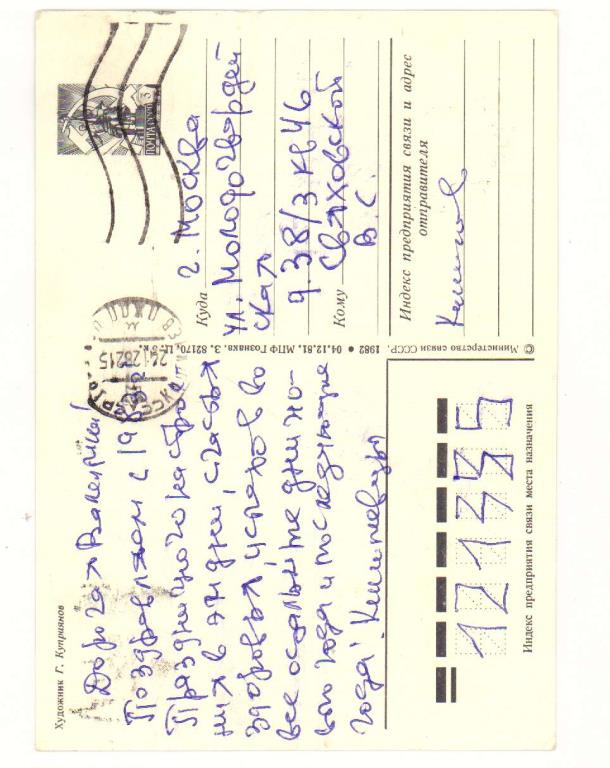 Художник Г. Куприянов
Дорогая Валерия!
Поздравляем с 1983
Праздничного настрое
ния в эти дни, счастья
здоровья, успехов во
все остальные дни но-
вого года и последующие
года!
© Министерство связи СССР. 1982 • 04.12.81. МПФ Гознака. З. 82170.
ПОЧТА СССР 3
Куда г. Москва
ул. Молодогвардей
ская
д. 38/3 кв 46
Кому Свяховской
В. С.
Индекс предприятия связи и адрес
отправителя
121355
Индекс предприятия связи места назначения